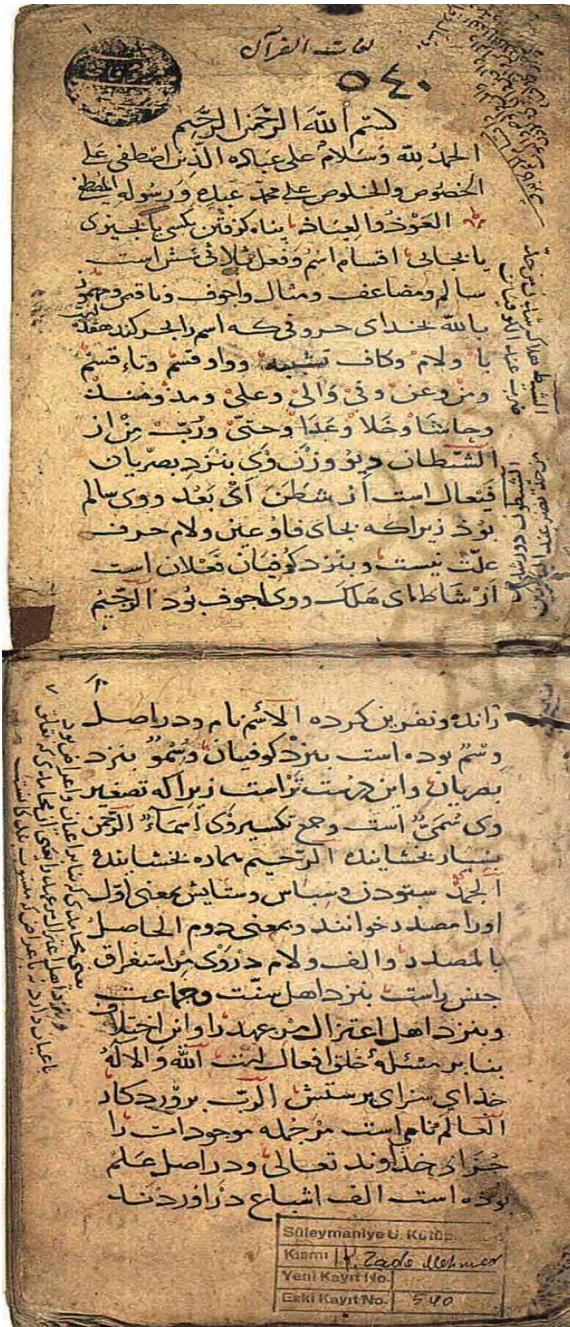 لغات القرآن
٥٤٠
بسم الله الرحمن الرحيم
الحمد لله وسلام على عباده الذين اصطفى على
الخصوص والخلوص على محمد عبده ورسوله المصطفى
العوذ والعياذ پناه كرفتن بكسى يا بچيزى
يا بجايى اقسام اسم وفعل ثلاثى شش است
سالم ومضاعف ومثال واجوف وناقص ومهموز
بالله بخداى حروفى كه اسم را بجر كند هفده
با ولام وكاف تشبيه وواو قسم وتاء قسم
ومن وعن وفى والى وعلى ومذ ومنذ
وحاشا وخلا وعدا وحتى ورب من از
الشيطان ديو وزن وى بنزد بصريان
فيعال است از شطن اى بعد ووى سالم
بود زيراكه بجاى فا وعين ولام حرف
علت نيست وبنزد كوفيان فعلان است
از شاط اى هلك ووى اجوف بود الرجيم
رانده ونفرين كرده الاسم نام ودر اصل
وسم بوده است بنزد كوفيان وسمو بنزد
بصريان واين درست تر است زيراكه تصغير
وى سمى است وجمع تكسير وى اسماء الرحمن
بسيار بخشاينده الرحيم هماره بخشاينده
الحمد ستودن وسپاس وستايش بمعنى اول
اورا مصدر خوانند وبمعنى دوم الحاصل
بالمصدر والف ولام در وى مر استغراق
جنس راست بنزد اهل سنت وجماعت
وبنزد اهل اعتزال مر عهد را واين اختلاف
بنا بر مسئله خلق افعال است الله والاله
خداي سزاى پرستش الرب پروردكار
العالم نامى است مر جمله موجودات را
جز از خداوند تعالى ودر اصل علم
بوده است الف اشباع در اوردند
Süleymaniye U. Kütüp.
Kısmı K. Zade Mehmed
Yeni Kayıt No.
Eski Kayıt No. 540